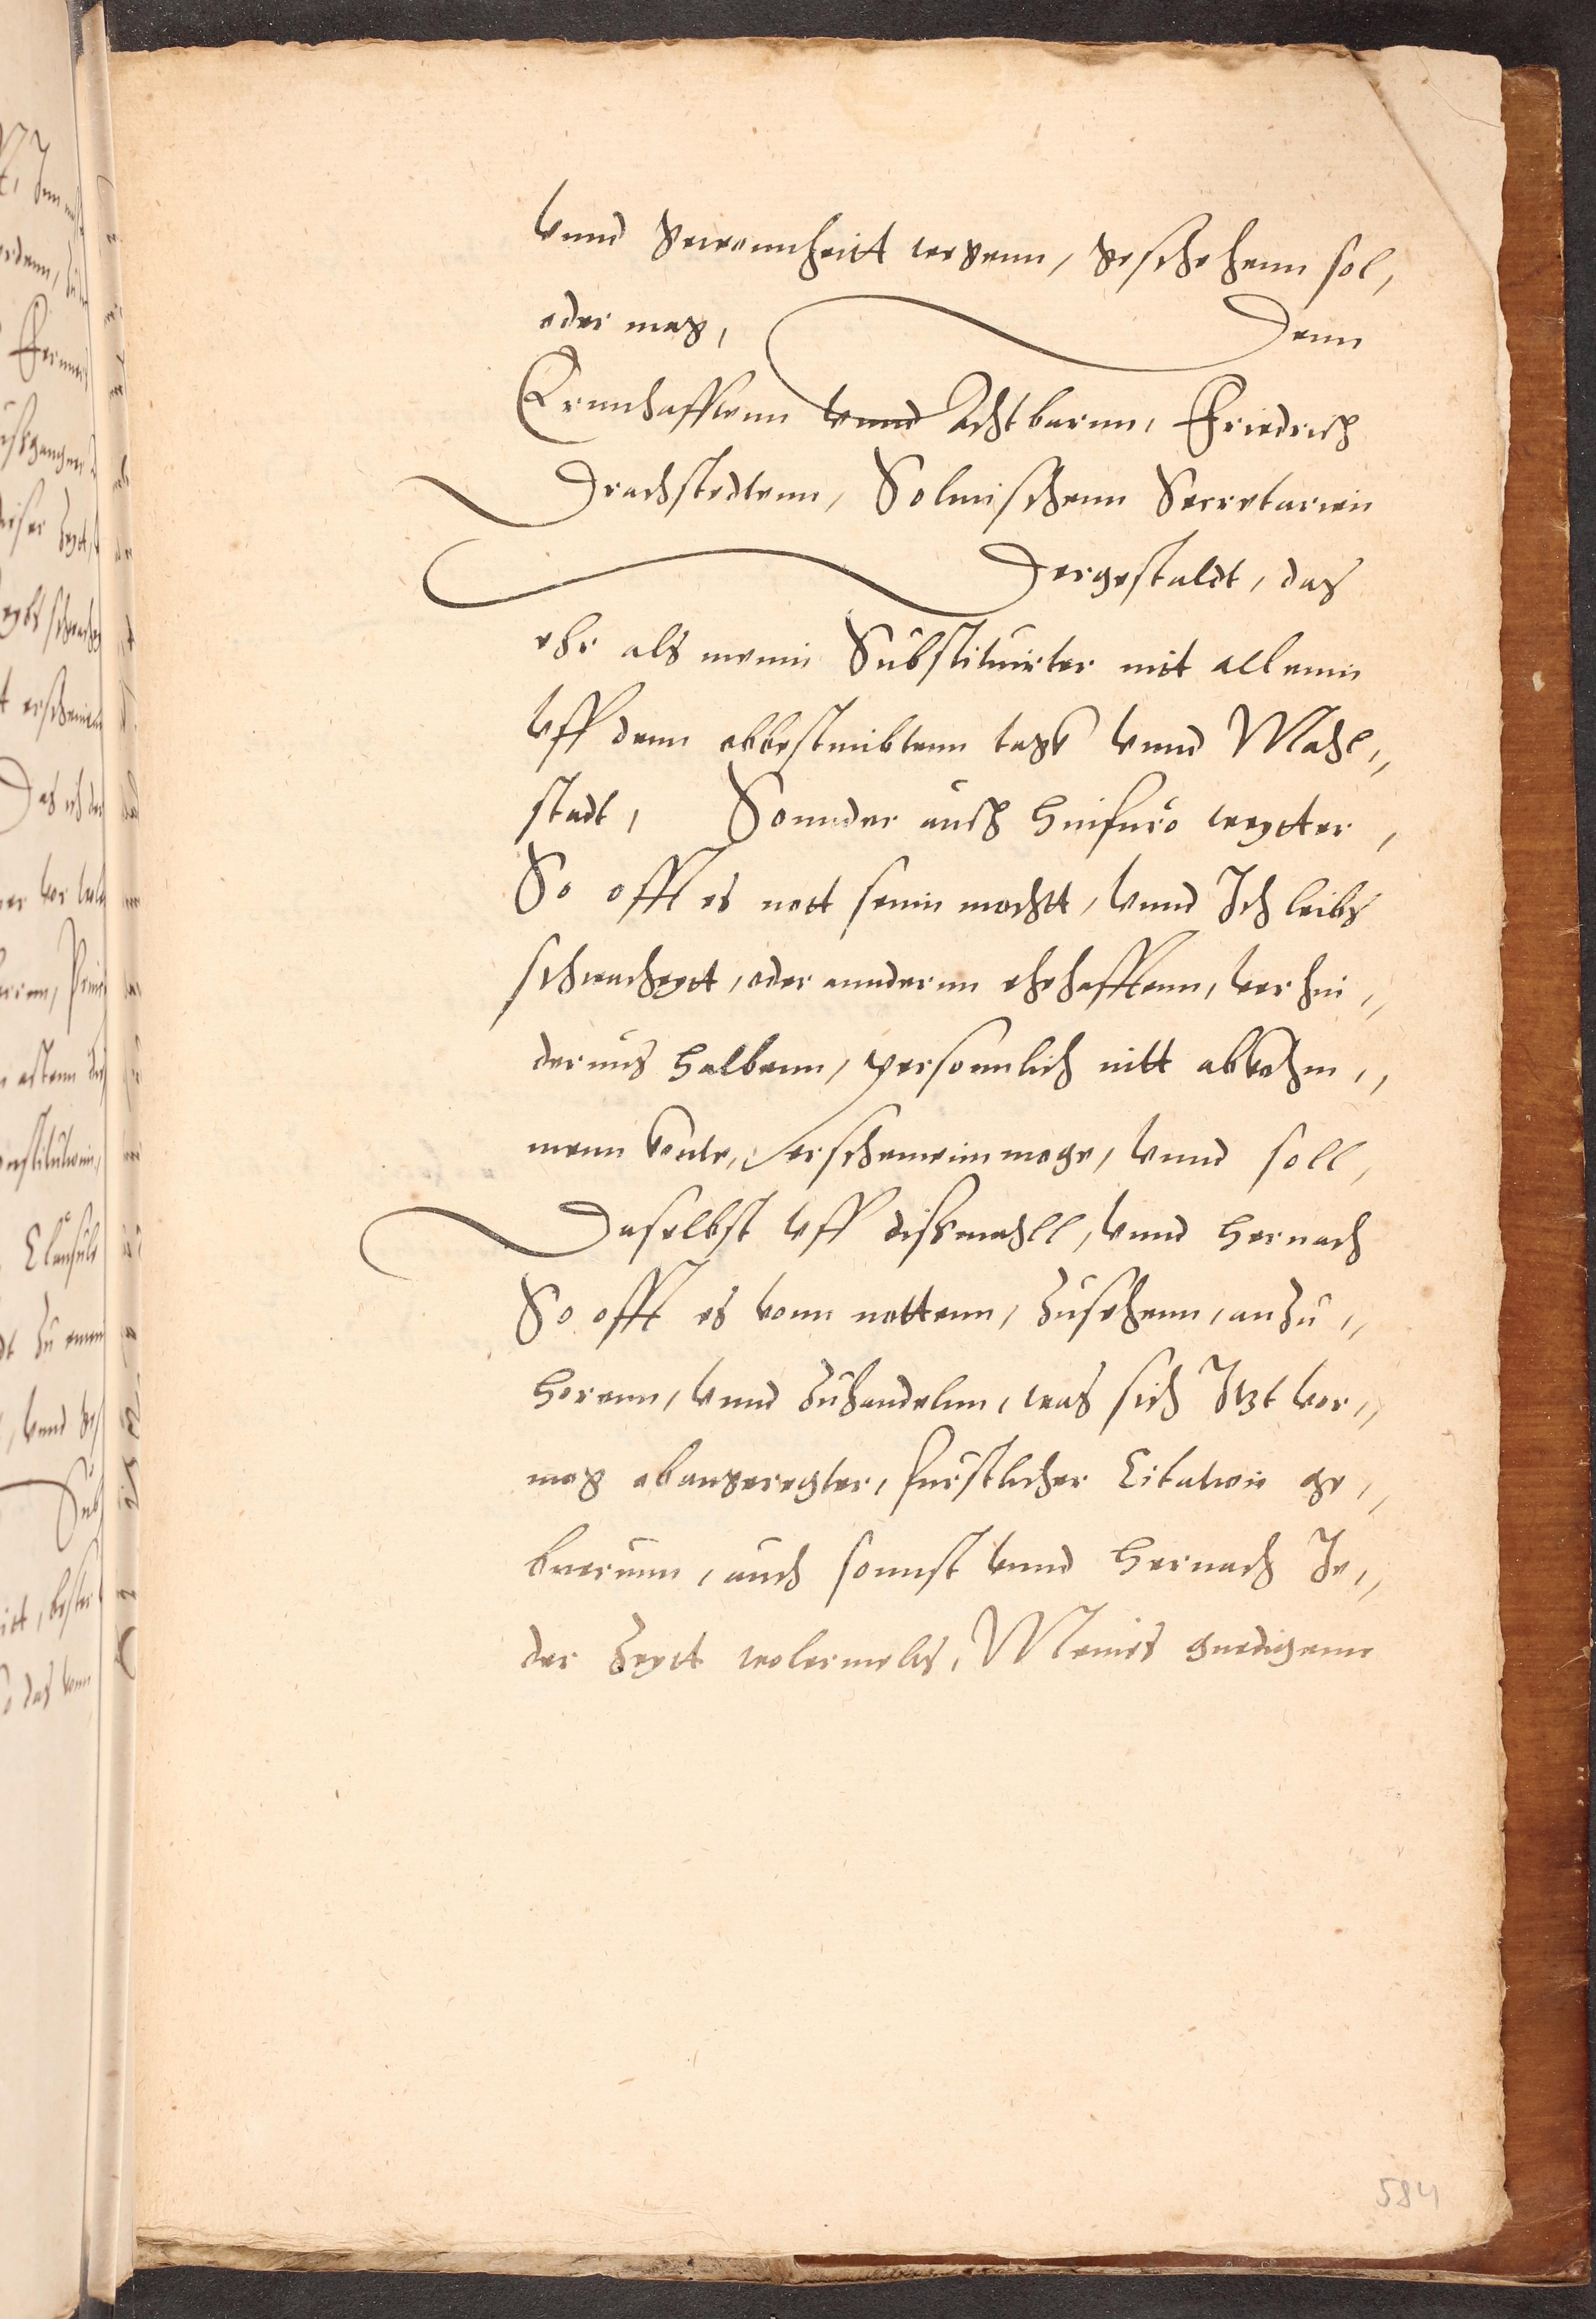 vnnd gewonnheitt wegenn, geschehenn sol,
oder mag, Denn
Ernnhafftenn vnnd Achtbarnn, Friedrich
Drachstedtenn, Solmischenn Secretarien
Dergestaldt, das
ehr als menin Substituirter nit allenin
vff denn obbestmibtenn tagk vnnd Mahl„
stadt, Sonnder auch hinfuro weytter,
So offt es nott senin mochtt, vnnd Ich leibs
schwacheytt, oder anndernn ehehafftenn, verhin„
dernus halbenn, personnlich nitt abkohm„
menn konte, erschenenn moge, vnnd soll,
Daselbst vff dißmahll, vnnd hernach
So offt es vonn nottenn, zusehenn, anzu„
horenn, vnnd zuhandelnn, was sich Itzt ver„
mog obangeregter, furstlicher Citation ge„
buerenn, auch sonnst vnnd hernach Je„
der Zeytt wolermelts, Menies gnedigenn
584